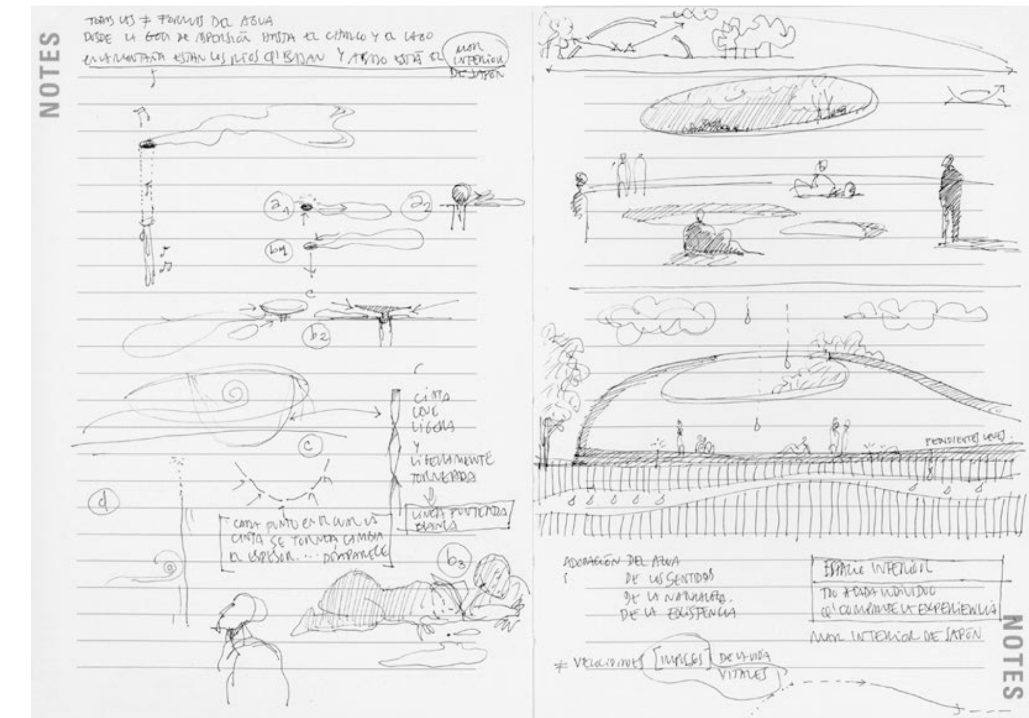 NOTES
TODAS LAS ≠ FORMAS DEL AGUA
DESDE LA GOTA DE ASPERSIÓN HASTA EL CHARCO Y EL LAGO
EN LA MONTAÑA ESTÁN LOS RÍOS Q' BAJAN Y ABAJO ESTÁ EL MAR
INTERIOR
DE JAPÓN
a1
a2
b1
c
b2
CINTA
LEVE
LIGERA
Y
LIGERAMENTE
TORNEADA
LINEA PUNTEADA
BLANCA
c
d
CADA PUNTO EN EL CUAL LA
CINTA SE TORNEA CAMBIA
EL ESPESOR... DESAPARECE
b3
PENDIENTES LEVES
ADORACIÓN DEL AGUA
DE LOS SENTIDOS
DE LA NATURALEZA.
DE LA EXISTENCIA
ESPACIO INTERIOR
A CADA INDIVIDUO
Q' COMPARTE LA EXPERIENCIA
MAR INTERIOR DE JAPÓN
≠ VELOCIDADES [IMPULSOS] DE LA VIDA
VITALES
NOTES